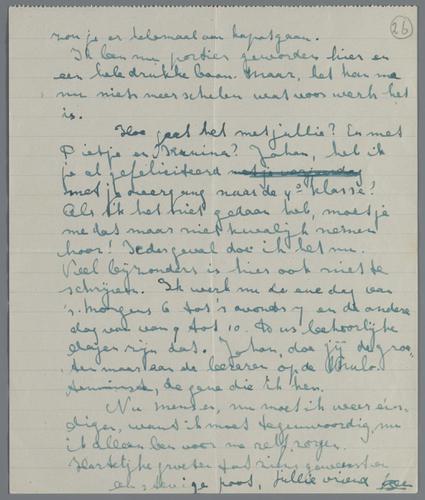 26
zou je er helemaal aan kapot gaan.
Ik ben nu portier geworden hier en
een hele drukke baan. Maar, het kan me
nu niets meer schelen wat voor werk het
is.
Hoe gaat het met jullie? En met
Pietje en ? Johan, heb ik
je al gefeliciteerd met je verjaardag
met je overgang naar de 4e klasse?
Als ik het niet gedaan heb, moet je
me dat maar niet kwalijk nemen
hoor! Iedergeval doe ik het nu.
Veel bijzonders is hier ook niet te
schrijven. Ik werk nu de ene dag van
's morgens 6 tot 's avonds 7 en de andere
dag van van 9 tot 10. Dus behoorlijke
dagen zijn dat. Johan, doe jij de groe-
ten maar aan de leraren op de Mulo
tenminste, degene die ik ken.
Nu mensen, nu moet ik weer ein-
digen, want ik moet tegenwoordig, nu
ik alleen ben voor me zelf zorgen.
Hartelijke groeten tot ziens gewenst en
een ge poot, Jullie vriend